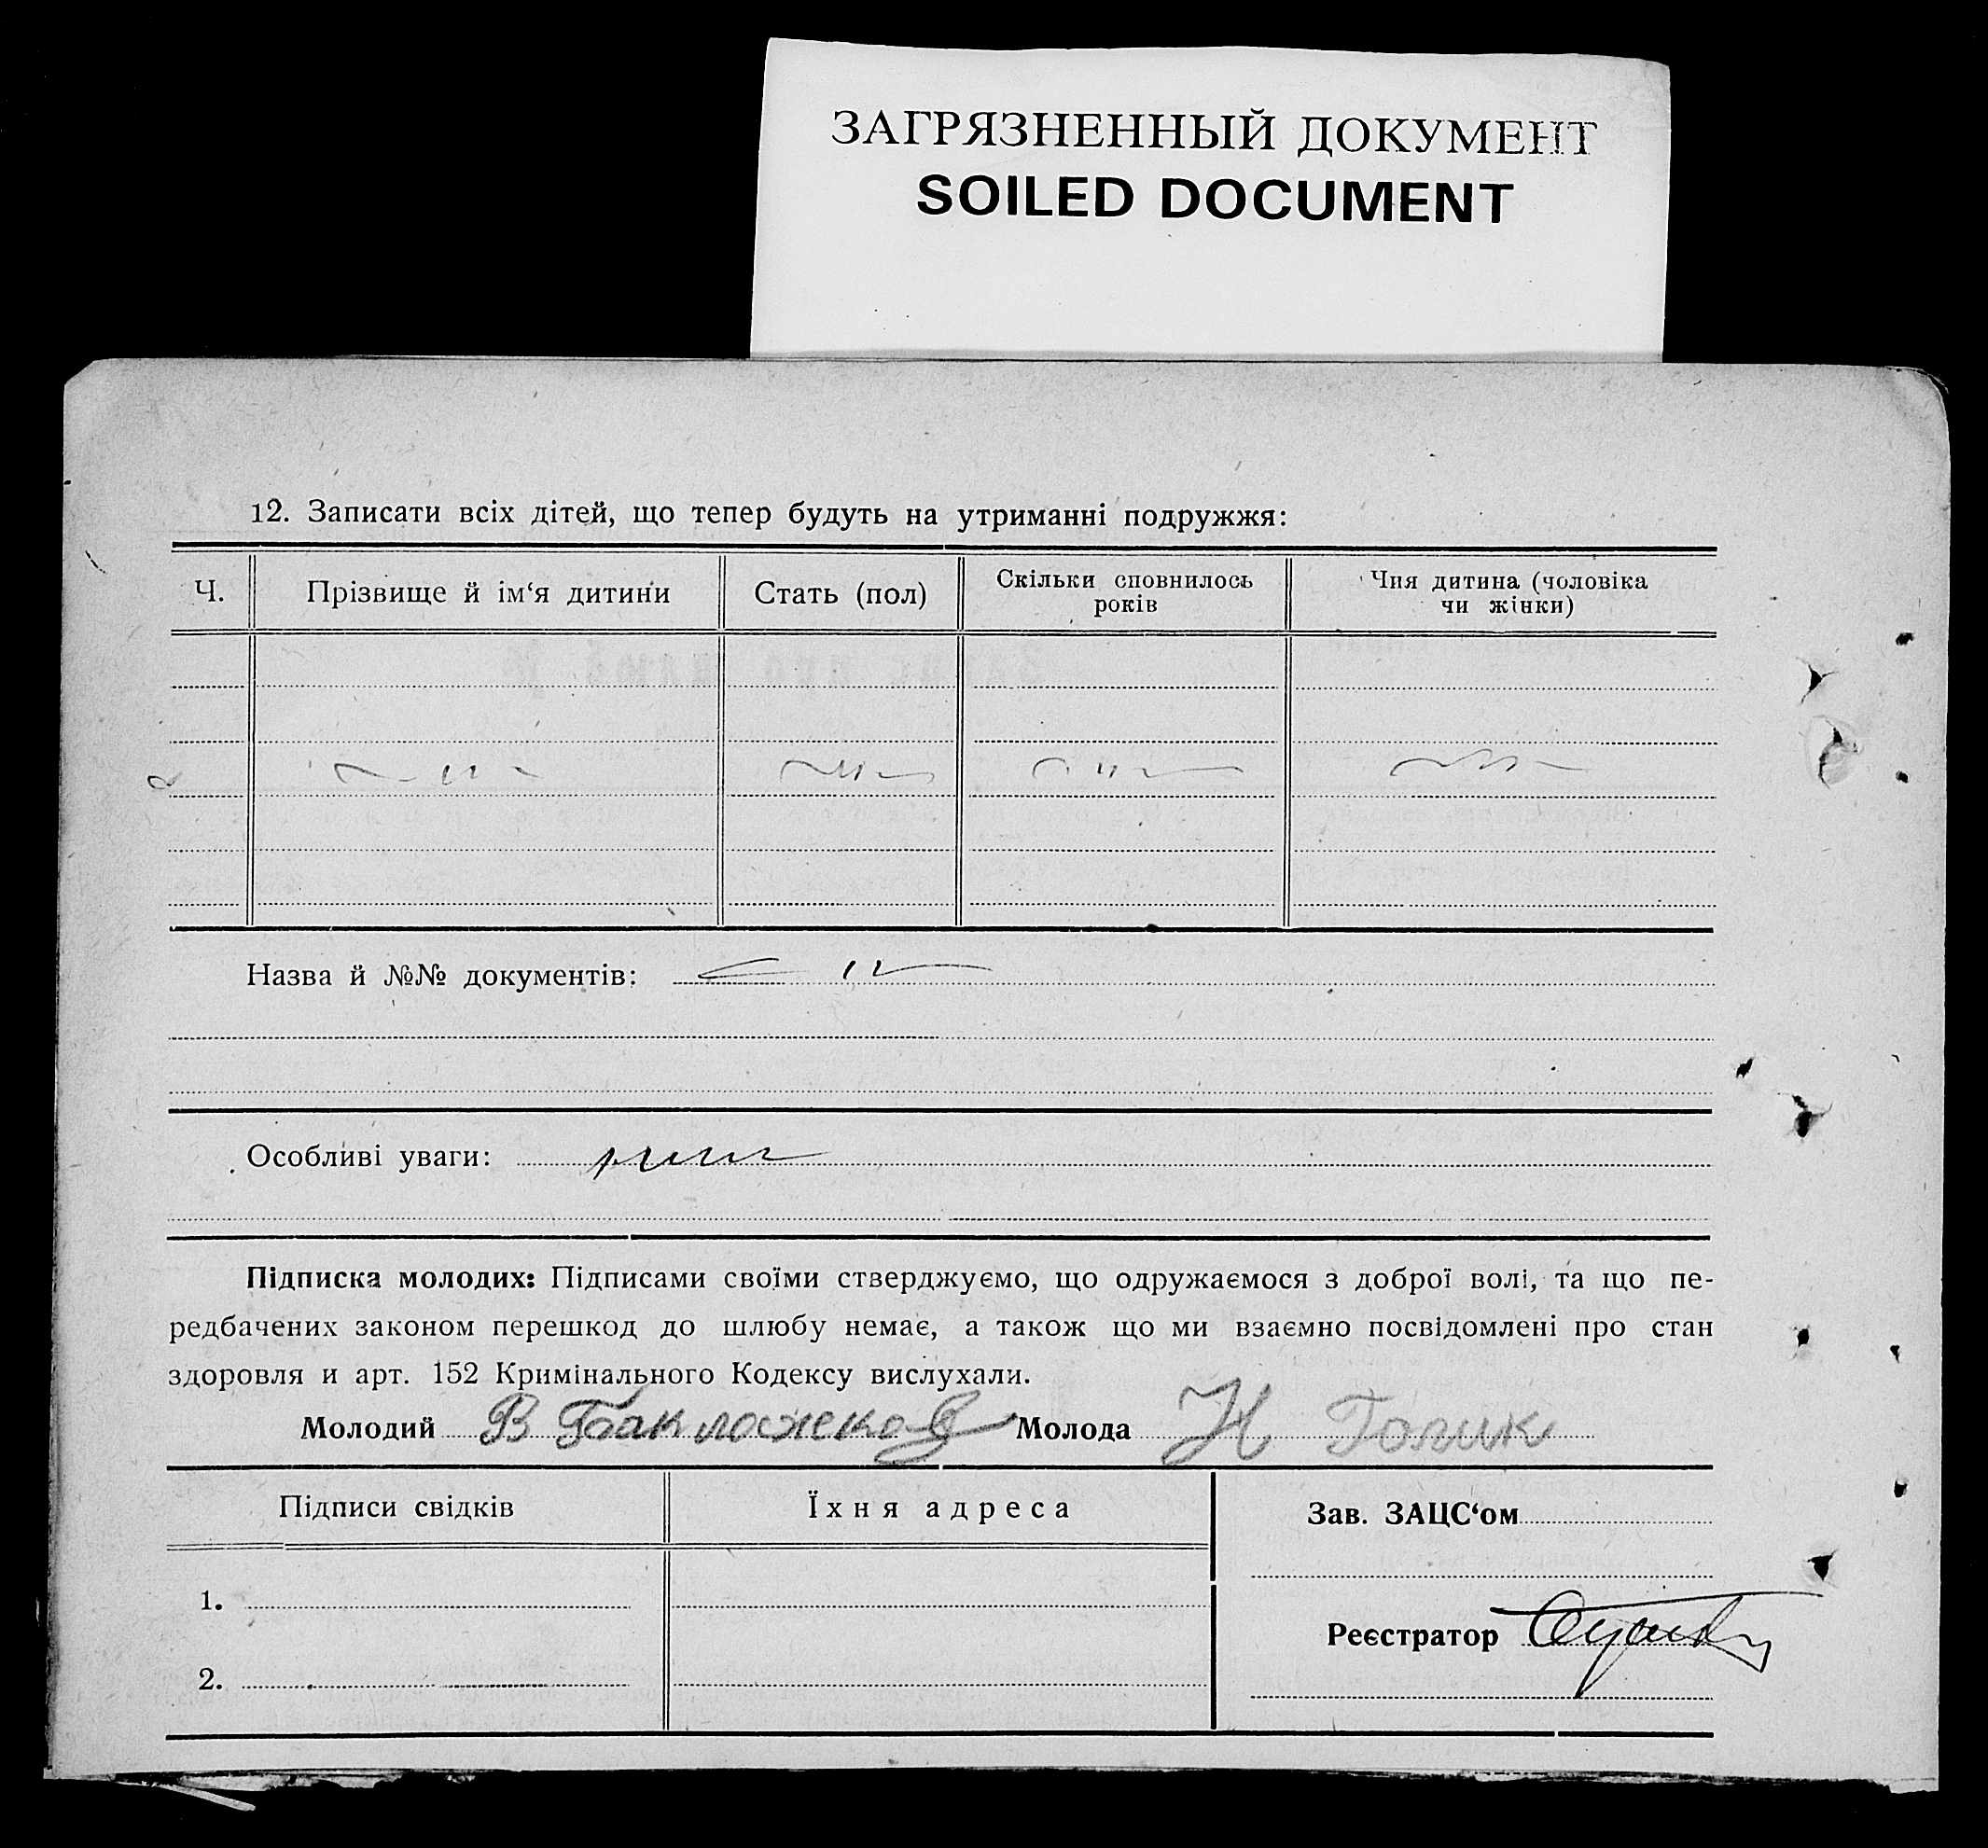 ЗАГРЯЗНЕННЫЙ ДОКУМЕНТ
SOILED DOCUMENT
12. Записати всіх дітей, що тепер будуть на утриманні подружжя:
Ч. Прізвище й ім‘я дитини Стать (пол) Скільки сповнилось років Чия дитина (чоловіка чи жінки)
Назва й №№ документів:
Особливі уваги:
Підписка молодих: Підписами своїми стверджуємо, що одружаємося з доброї волі, та що пе-
редбачених законом перешкод до шлюбу немає, а також що ми взаємно посвідомлені про стан
здоровля и арт. 152 Кримінального Кодексу вислухали.
Молодий В Баклажеков Молода Н Голик
Підписи свідків Їхня адреса Зав. ЗАЦС‘ом
1.
Реєстратор
2.